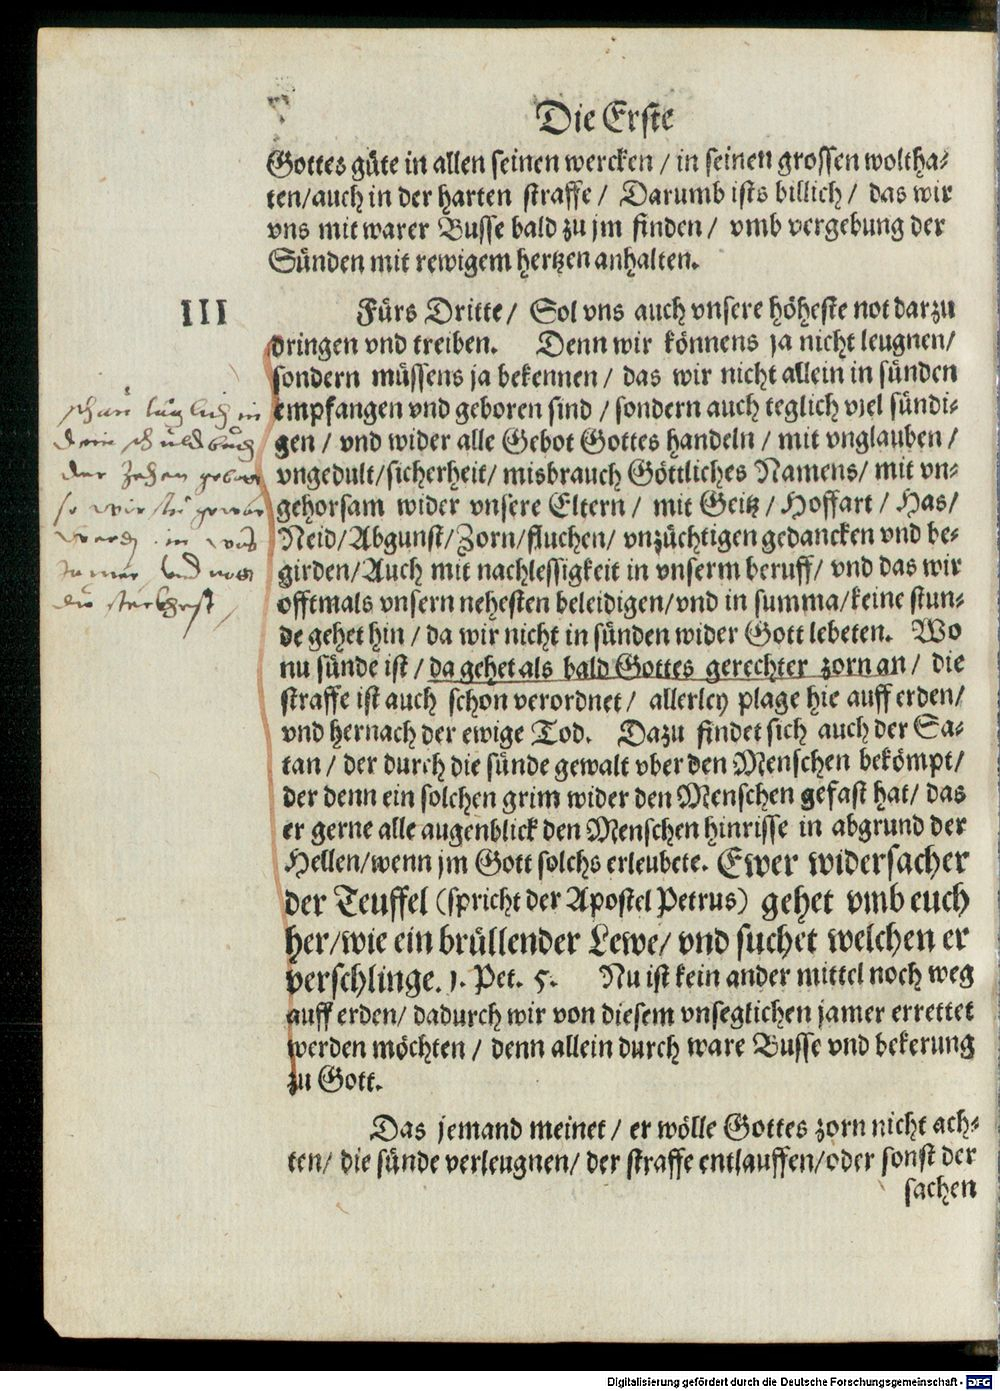 Die Erste
Gottes güte in allen seinen wercken / in seinen grossen woltha-
ten/auch in der harten straffe / Darumb ists billich / das wir
vns mit warer Busse bald zu jm finden / vmb vergebung der
Sünden mit rewigem hertzen anhalten.
III
Fürs Dritte / Sol vns auch vnsere höheste not darzu
dringen vnd treiben. Denn wir könnens ja nicht leugnen/
sondern müssens ja bekennen / das wir nicht allein in sünden
empfangen vnd geboren sind / sondern auch teglich viel sündi-
gen / vnd wider alle Gebot Gottes handeln / mit vnglauben /
vngedult/sicherheit/ misbrauch Göttliches Namens/ mit vn-
gehorsam wider vnsere Eltern / mit Geitz / Hoffart / Has/
Neid/Abgunst/Zorn/fluchen/ vnzüchtigen gedancken vnd be-
girden/Auch mit nachlessigkeit in vnserm beruff/ vnd das wir
offtmals vnsern nehesten beleidigen/vnd in summa/keine stun-
de gehet hin / da wir nicht in sünden wider Gott lebeten. Wo
nu sünde ist / da gehet als bald Gottes gerechter zorn an / die
straffe ist auch schon verordnet / allerley plage hie auff erden/
vnd hernach der ewige Tod. Dazu findet sich auch der Sa-
tan / der durch die sünde gewalt vber den Menschen bekömpt/
der denn ein solchen grim wider den Menschen gefast hat/ das
er gerne alle augenblick den Menschen hinrisse in abgrund der
Hellen/wenn jm Gott solchs erleubete. Ewer widersacher
der Teuffel (spricht der Apostel Petrus) gehet vmb euch
her/wie ein brüllender Lewe/ vnd suchet welchen er
verschlinge. 1. Pet. 5. Nu ist kein ander mittel noch weg
auff erden/ dadurch wir von diesem vnseglichen jamer errettet
werden möchten / denn allein durch ware Busse vnd bekerung
zu Gott.
Das jemand meinet / er wölle Gottes zorn nicht ach-
ten/ die sünde verleugnen/ der straffe entlauffen/oder sonst der
sachen
schau in
dein schuldbuch
der Zehen gebott
so wirstu gewar
werden in was
Jamer vnd noth
du steckhest
Digitalisierung gefördert durch die Deutsche Forschungsgemeinschaft - DFG